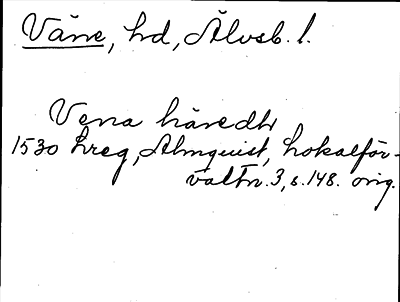 Väne, hd, Älvsb. l.
Vena häredh
1530 hreg, Almquist, Lokalför-
valtn. 3, s. 148. orig.